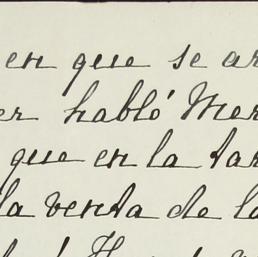 en que se ar
er habló Mer
que en la tar
la venta de lo